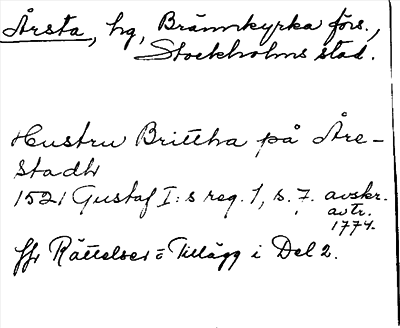 Årsta, hg, Brännkyrka förs.,
Stockholms stad.
Hustru Brittha på Åre-
stadh
1521 Gustaf I:s reg. 1, s. 7. avskr.
avtr.
1774.
jfr Rättelser o Tillägg i Del 2.